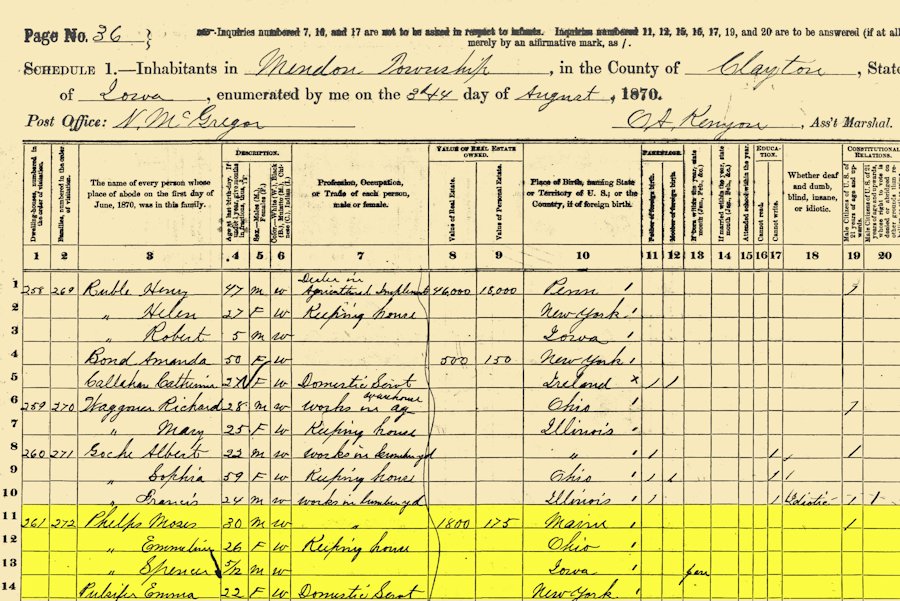 Page No. 36
Inquiries numbered 7, 16, and 17 are not to be asked in respect to infants. Inquiries numbered 11, 12, 15, 16, 17, 19, and 20 are to be answered (if at all
merely by an affirmative mark, as /.
SCHEDULE 1.—Inhabitants in Mendon Township, in the County of Clayton, State
of Iowa, enumerated by me on the 3d &4 day of August, 1870.
Post Office: N. McGregor O A. Kenyon, Ass't Marshal.
Dwelling-houses, numbered in the order of visitation.
Families, numbered in the order of visitation.
The name of every person whose place of abode on the first day of June, 1870, was in this family.
DESCRIPTION.
Age at last birth-day. If under 1 year, give months in fractions, thus,
Sex.—Males (M.), Females (F.)
Color.—White (W.), Black (B.), Mulatto (M.), Chinese (C.), Indian (I.)
Profession, Occupation, or Trade of each person, male or female.
VALUE OF REAL ESTATE OWNED.
Value of Real Estate.
Value of Personal Estate.
Place of Birth, naming State or Territory of U. S.; or the Country, if of foreign birth.
PARENTAGE.
Father of foreign birth.
Mother of foreign birth.
If born within the year, state month (Jan., Feb., &c.)
If married within the year, state month (Jan., Feb., &c.)
Attended school within the year.
EDUCATION.
Cannot read.
Cannot write.
Whether deaf and dumb, blind, insane, or idiotic.
CONSTITUTIONAL RELATIONS.
Male Citizens of U. S. of 21 years of age and upwards.
1 2 3 4 5 6 7 8 9 10 11 12 13 14 15 16 17 18 19 20
1 258 269 Ruble Henry 47 M W Dealer in Agricultural Implemts 46,000 15,000 Penn / 1
2 " Helen 27 F W Keeping house New York /
3 " Robert 5 M W Iowa /
4 Bond Amanda 50 F W 500 150 New York /
5 Callahan Catherine 27 F W Domestic Servt Ireland x / /
6 259 270 Waggoner Richard 28 M W works in ag warehouse Ohio / 1
7 " Mary 25 F W Keeping house Illinois /
8 260 271 Goche Albert 22 M W works in lumber yd " / / / /
9 " Sophia 59 F W Keeping house Ohio / / / / /
10 " Francis 24 M W works in lumber yd Illinois / / / Idiotic 1 1
11 261 272 Phelps Moses 30 M W " 1800 175 Maine / /
12 " Emmeline 26 F W Keeping house Ohio /
13 " Spencer 5/12 M W Iowa / Jan
14 Pulsifer Emma 22 F W Domestic Servt New York /